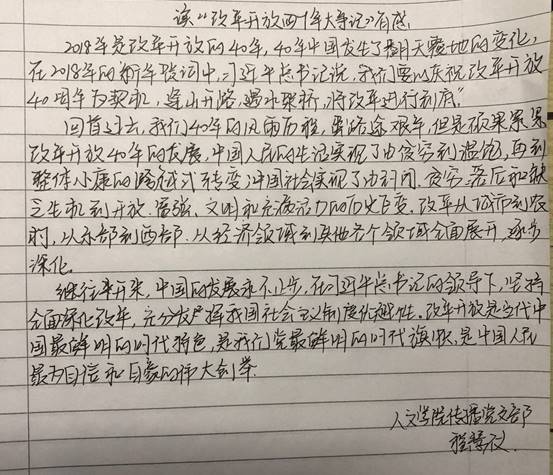 读“改革开放四十年大事记”有感
2018年是改革开放的40年，40年中国发生了翻天覆地的变化，
在2018年的新年致词中，习近平总书记说，我们要以庆祝改革开放
40周年为契机，逢山开路，遇水架桥，将改革进行到底”
回首过去，我们40年的风雨历程，虽路途艰辛，但是硕果累累
改革开放40年的发展，中国人民的生活实现了由贫穷到温饱，再到
整体小康的跨越式转变；中国社会实现了由封闭、贫穷、落后和缺
乏生机到开放、富强、文明和充满活力的历史巨变。改革从城市到农
村，从东部到西部，从经济领域到其他各个领域全面展开，逐步
深化。
继往开来，中国的发展永不止步，在习近平总书记的领导下，坚持
全面深化改革，充分发挥我国社会主义制度优越性。改革开放是当代中
国最鲜明的时代特色，是我们党最鲜明的时代旗帜，是中国人民
最为自信和自豪的伟大创举
人文学院传播党支部
程